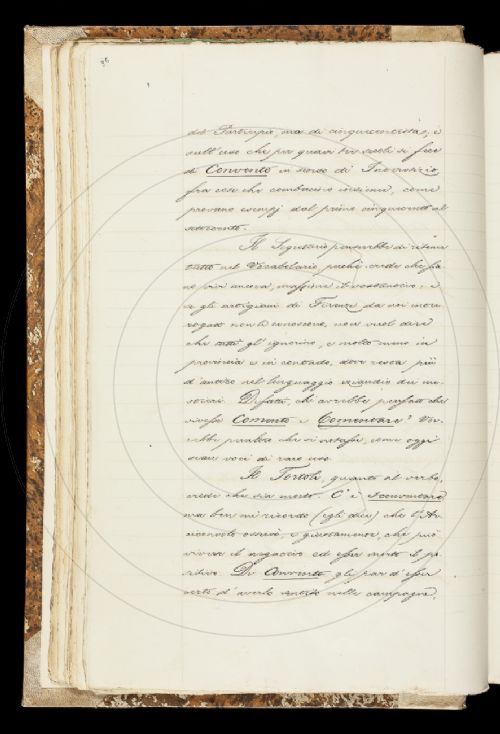 del Participio, ma di cinquecentista, e
sull'uso che per quasi tre secoli si fece
di Convento in senso di Interstizio
fra cose che combacino insieme, come
provano esempj dal primo cinquecento al
settecento.
Il Segretario penserebbe di
tutto nel Vocabolario, perchè crede che
ne sia ancora, massime il sostantivo; e
se gli artigiani di Firenze da noi inter
rogati non li conoscono, non vuol dire
che tutti gl'ignorino, e molto meno in
provincia e in contado, dove resta più
d'antico nel linguaggio eziandio dei me-
stieri. Difatti, chi avrebbe pensato che
vivesse Comento e Comentare? Var-
rebbe che si notasse, come oggi
sono voci di raro uso.
Il Tortoli, quanto al verbo,
crede che sia morto. C'è sconventare
ma ben mi ricordo (egli dice) che l'Ar
ciconsolo osservò, e giustamente, che può
vivere il negativo ed esser morto il po
sitivo. Di Convento gli par d'esser
certo d'averlo sentito nelle campagne,